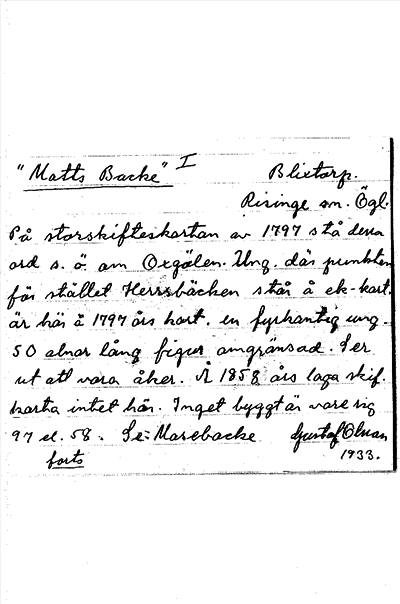 "Matts Backe" I Blixtorp.
Risinge sn. Ögl.
På storskifteskartan av 1797 stå dessa
ord s. ö. om Oxgölen. Ung. där punkten
för stället Herrsbäcken står å ek-kart.
är här å 1797 års kart. en fyrkantig ung.
50 alnar lång figur omgränsad. Ser
ut att vara åker. Å 1858 års laga skif.
karta intet här. Inget byggt är vare sig
97 el. 58. Se: Marebacke Gustaf Olman
forts 1933.